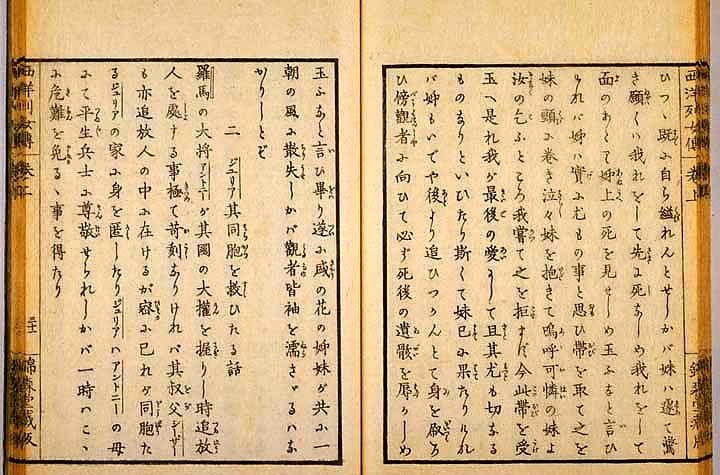 西洋列女傳
巻上
ひつゝ既に自ら縊れんとせしかバ妹ハ遽て驚
き願くハ我れをして先に死なしめ我れをして
面のあたり姉上の死を見せしめ玉ふなと言ひ
けれバ姉ハ實に尤もの事と思ひ帯を取て之を
妹の頸に巻き泣々妹を抱きて嗚呼可憐の妹よ
汝の乞ふところ我嘗て之を拒まず今此帯を受
玉へ是れ我が最後の愛にして且其尤も切なる
ものなりといひたり斯くて妹已に果たりけれ
バ姉もいでや後より追ひつかんとて身を
ひ傍觀者に向ひて必ず死後の遺骸を辱かしめ
玉ふなと言ひ畢り遂に盛の花の姉妹が共に一
朝の風に散失しかバ觀者皆袖を濡さゞるハな
かりしとぞ
二 ジュリア其同胞を救ひたる話
羅馬の大将アントニーが其國の大權を握りし時追放
人を處する事極て苛刻なりけれバ其叔父シーザー
も亦追放人の中に在けるが窃に己れが同胞た
るジュリアの家に身を匿したりジュリアハアントニーの母
にて平生兵士に尊敬せられしかバ一時ハこゝ
に危難を免るゝ事を得たり
西洋列女傳
巻上
錦森堂蔵版